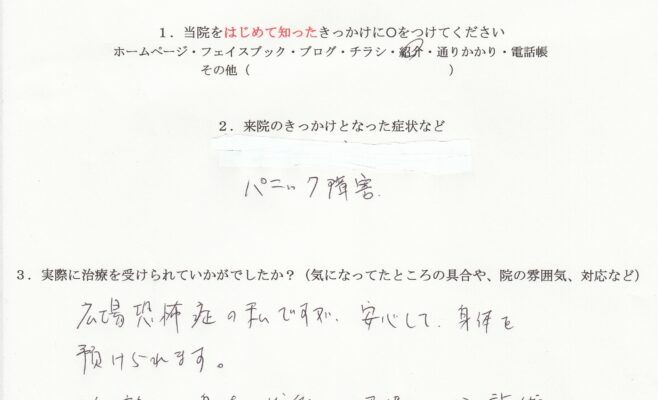 1．当院をはじめて知ったきっかけに○をつけてください
ホームページ・フェイスブック・ブログ・チラシ・紹介・通りかかり・電話帳
その他（　　　　　　　　　　　　　　）
2．来院のきっかけとなった症状など
パニック障害.
3．実際に治療を受けられていかがでしたか？（気になってたところの具合や、院の雰囲気、対応など）
広場恐怖症の私ですが、安心して、身体を
預けられます。